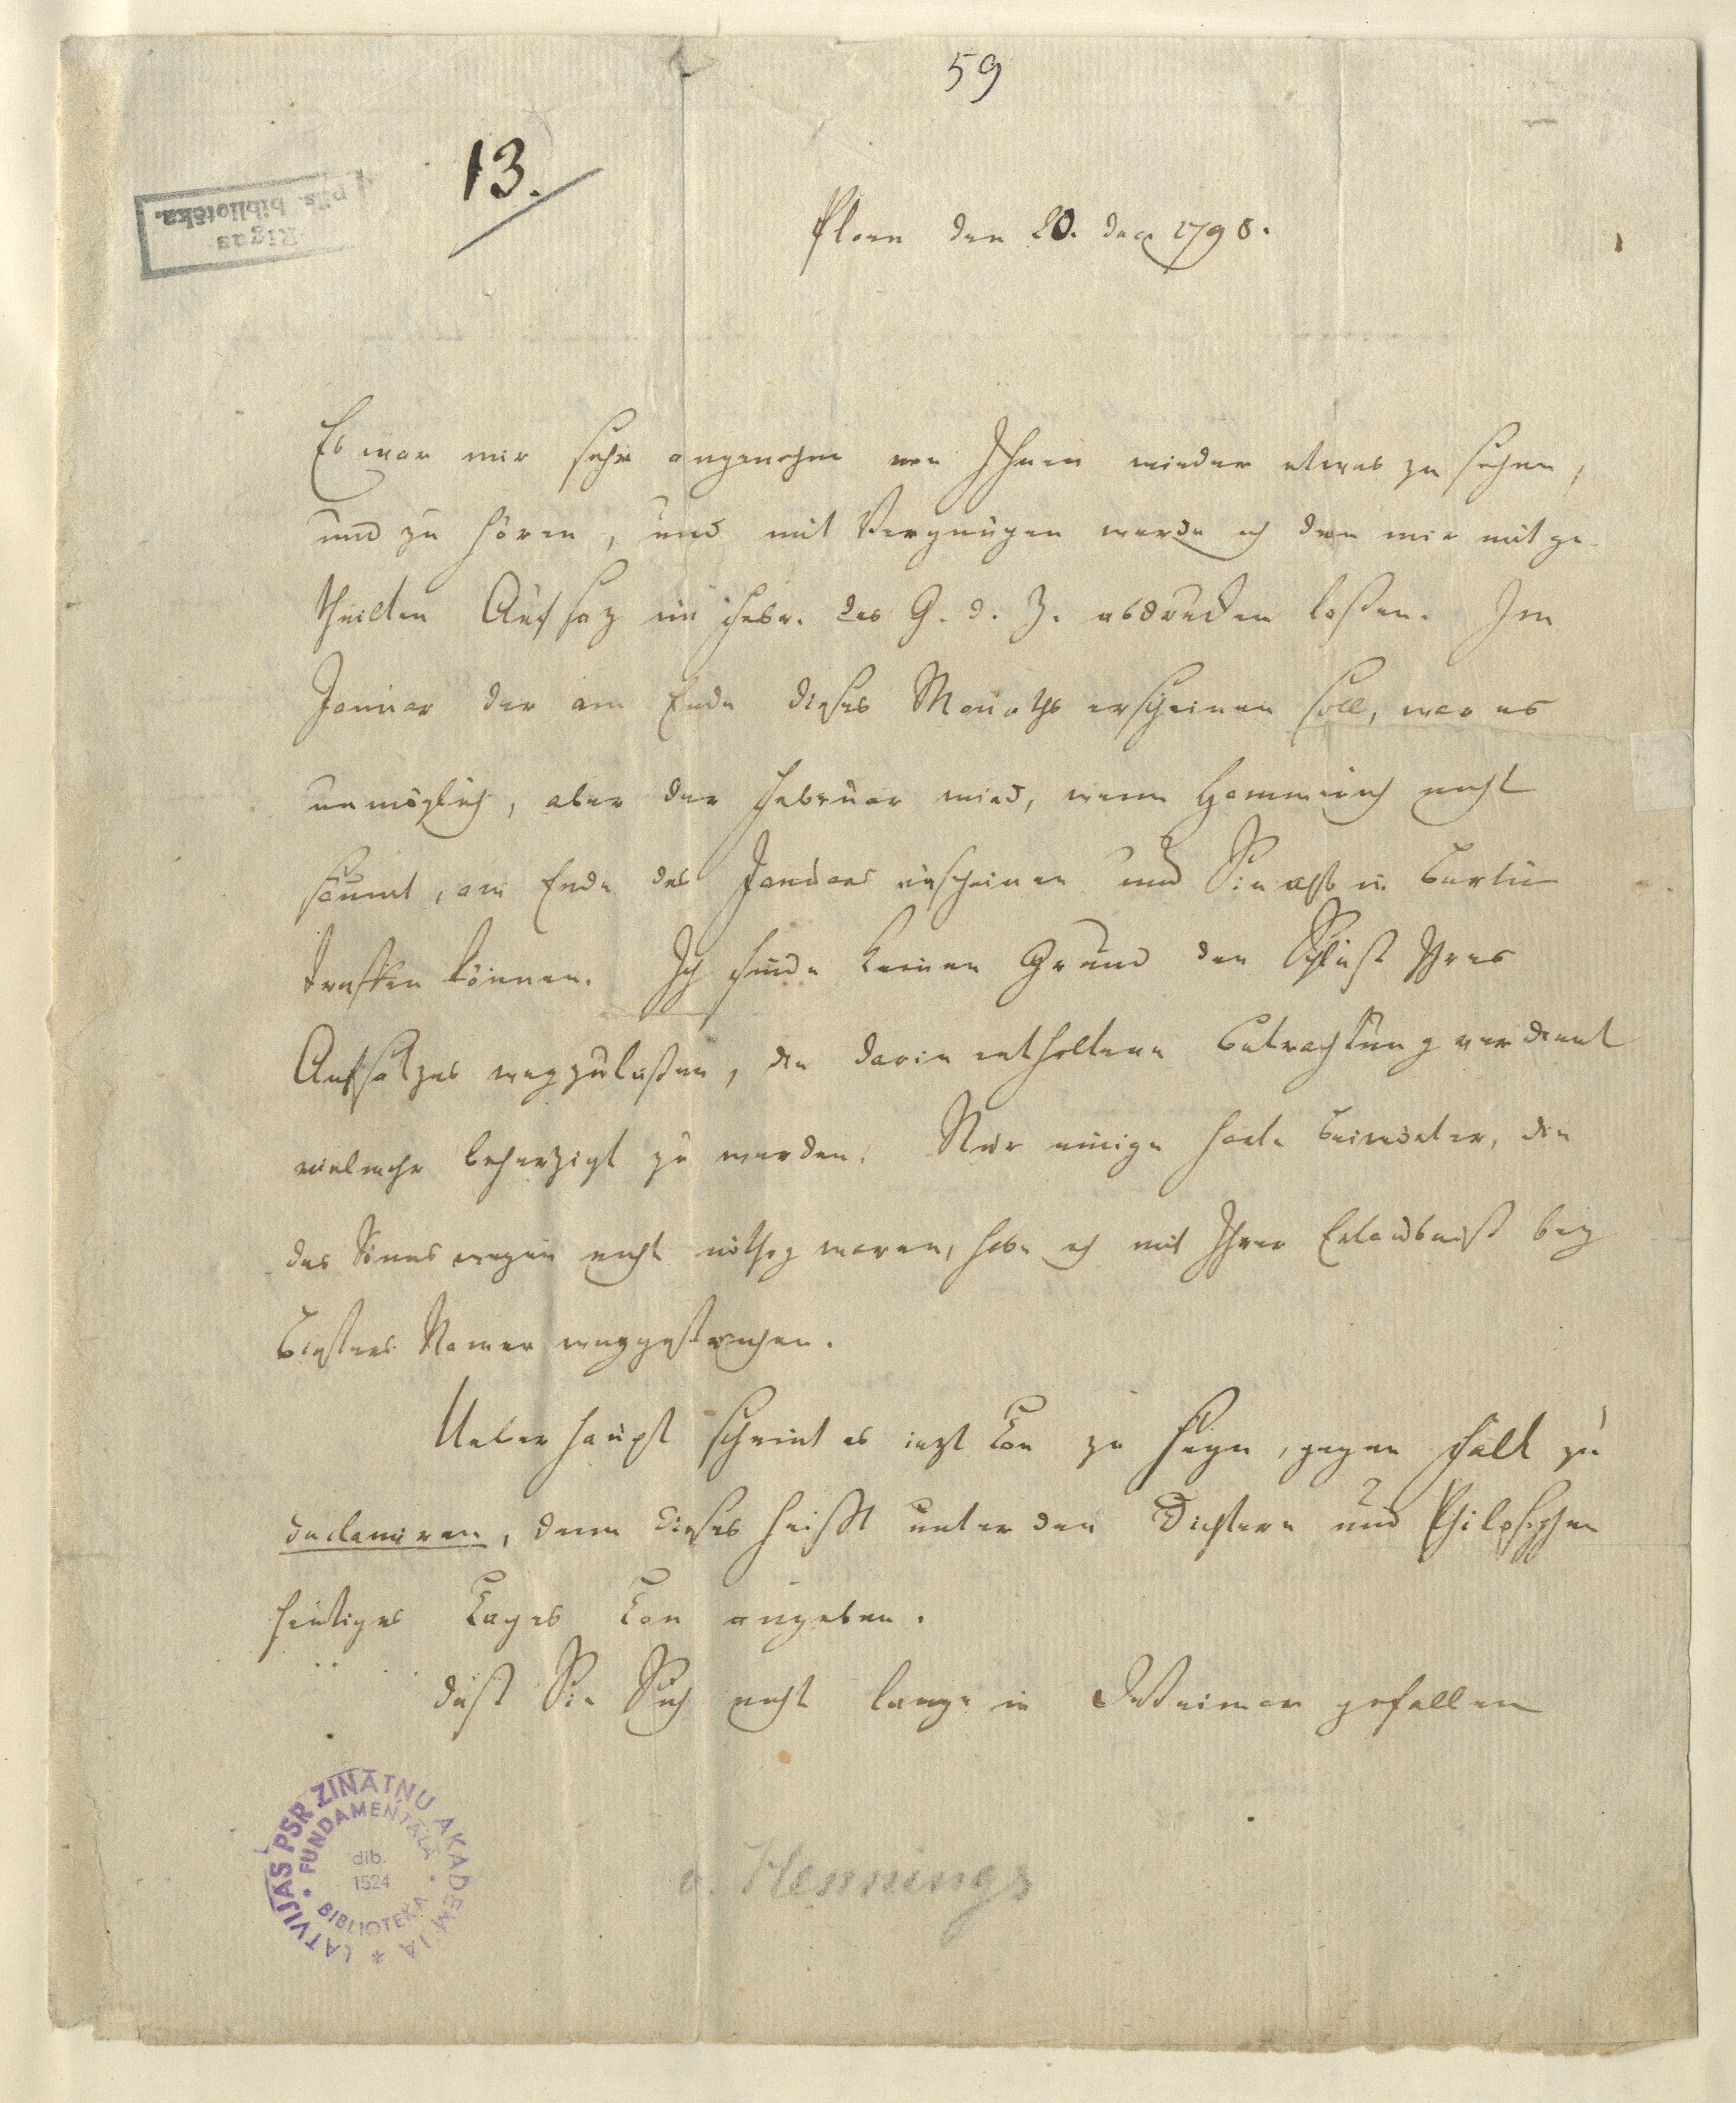 59
13.
Rigas
pils. bibliotēka.
Ploen den 20. dec 1798.
Es war mir sehr angenehm von Ihnen wieder etwas zu sehen,
und zu hören, und mit Vergnügen werde ich den mir mitge-
theilten Aufsaz im Febr. des G. d. Z. abdrucken laßen. Im
Januar der am Ende dieses Monaths erscheinen soll, war es
unmöglich, aber der Februar wird, wenn Hammerich nicht
säumt, am Ende des Januars erscheinen und Sie also in Berlin
treffen können. Ich finde keinen Grund den Schluß Ihres
Aufsatzes wegzulaßen, die darin enthaltene Betrachtung verdient
vielmehr beherzigt zu werden. Nur einige harte Beiwörter, die
des Sinnes wegen nicht nöthig waren, habe ich mit Ihrer Erlaubniß bey
Namen weggestrichen.
Ueberhaupt scheint es iezt Ton zu seyn, gegen Falk zu
declamiren, denn dieses heißt unter den Dichtern und Philosophen
heutiges Tages Ton angeben.
daß Sie Sich nicht lange in Weimar gefallen
v. Hennings
LATVIJAS PSR ZINĀTŅU AKADĒMIJA
FUNDAMENTĀLĀ BIBLIOTĒKA
dib.
1524